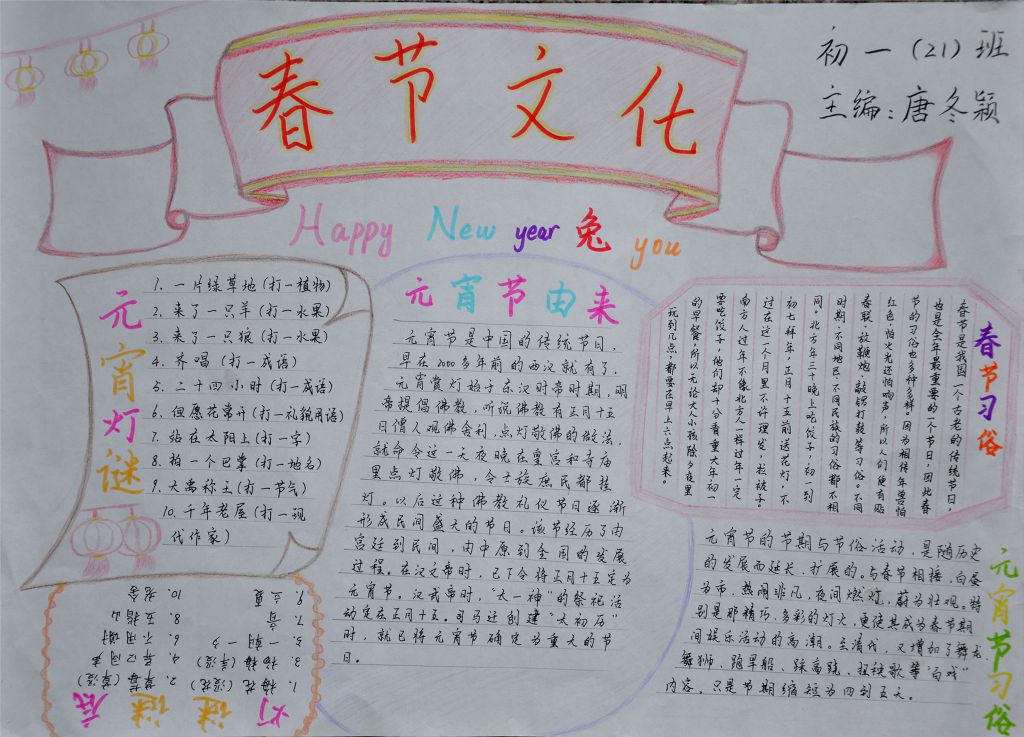 春节文化
初一（21）班
主编：唐冬颖
Happy New year 兔 you
元宵灯谜
1. 一片绿草地（打一植物）
2. 来了一只羊（打一水果）
3. 来了一只狼（打一水果）
4. 齐唱（打一成语）
5. 二十四小时（打一成语）
6. 但愿花常开（打一礼貌用语）
7. 站在太阳上（打一字）
8. 拍一个巴掌（打一地名）
9. 大禹称王（打一节气）
10. 千年老屋（打一现
代作家）
元宵节由来
元宵节是中国的传统节日，
早在2000多年前的西汉就有了，
元宵赏灯始于东汉明帝时期，明
帝提倡佛教，听说佛教有正月十五
日僧人观佛舍利，点灯敬佛的做法，
就命令这一天夜晚在皇宫和寺庙
里点灯敬佛，令士族庶民都挂
灯。以后这种佛教礼仪节日逐渐
形成民间盛大的节日。该节经历了由
宫廷到民间，由中原到全国的发展
过程。在汉文帝时，已下令将正月十五定为
元宵节。汉武帝时，“太一神”的祭祀活
动定在正月十五。司马迁创建“太初历”
时，就已将元宵节确定为重大的节
日。
春节习俗
春节是我国一个古老的传统节日，
也是全年最重要的一个节日，因此春
节的习俗也多种多样。因为相传年兽怕
红色，怕火光还怕响声，所以人们便有贴
春联、放鞭炮、敲锣打鼓等习俗。不同
时期、不同地区、不同民族的习俗都不相
同。北方年三十晚上吃饺子，初一到
初七拜年，正月十五前送花灯，不
过在这一个月里不许理发，拉被子。
南方人过年不像北方人一样过年一定
要吃饺子，他们却十分看重大年初一
的早餐，所以无论大人小孩除夕夜里
玩到几点，都要在早上六点起来。
元宵节习俗
元宵节的节期与节俗活动，是随历史
的发展而延长、扩展的。与春节相接，白昼
为市，热闹非凡，夜间燃灯，蔚为壮观。特
别是那精巧、多彩的灯火，更使其成为春节期
间娱乐活动的高潮。至清代，又增加了舞龙、
舞狮、跑旱船、踩高跷、扭秧歌等“百戏”
内容，只是节期缩短为四到五天。
灯谜谜底
1. 梅花（没花） 2. 草莓（草没）
3. 杨梅（羊没） 4. 异口同声
5. 一朝一夕 6. 不用谢
7. 音 8. 五指山
9. 立夏 10. 老舍